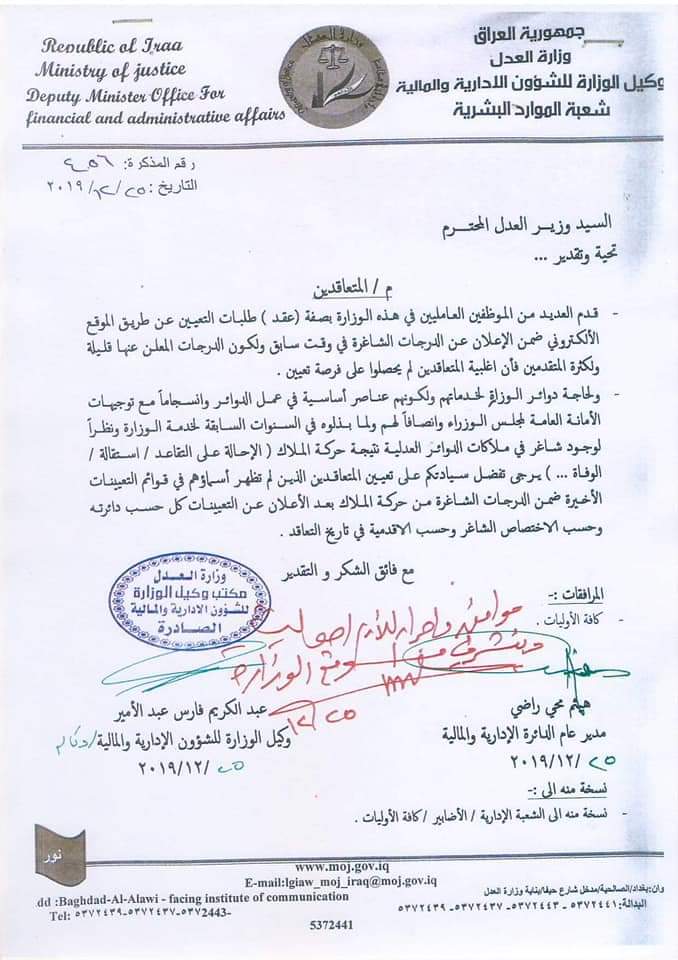 جمهورية العراق
وزارة العدل
وكيل الوزارة للشؤون الادارية والمالية
شعبة الموارد البشرية
Republic of Iraq
Ministry of justice
Deputy Minister Office For
financial and administrative affairs
رقم المذكرة: ٤٥٦
التاريخ: ٢٥/١٢/٢٠١٩
السيد وزير العدل المحترم
تحية وتقدير ...
م / المتعاقدين
- قدم العديد من الموظفين العامليين في هذه الوزارة بصفة (عقد ) طلبات التعيين عن طريق الموقع
الألكتروني ضمن الإعلان عن الدرجات الشاغرة في وقت سابق ولكون الدرجات المعلن عنها قليلة
ولكثرة المتقدمين فأن اغلبية المتعاقدين لم يحصلوا على فرصة تعيين .
- ولحاجة دوائر الوزارة لخدماتهم ولكونهم عناصر أساسية في عمل الدوائر وانسجاماً مع توجيهات
الأمانة العامة لمجلس الوزراء وانصافاً لهم ولما بذلوه في السنوات السابقة لخدمة الوزارة ونظراً
لوجود شاغر في ملاكات الدوائر العدلية نتيجة حركة الملاك ( الإحالة على التقاعد / استقالة /
الوفاة ... ) يرجى تفضل سيادتكم على تعيين المتعاقدين الذين لم تظهر أسماؤهم في قوائم التعيينات
الأخيرة ضمن الدرجات الشاغرة من حركة الملاك بعد الأعلان عن التعيينات كل حسب دائرته
وحسب الاختصاص الشاغر وحسب الاقدمية في تاريخ التعاقد .
مع فائق الشكر و التقدير
المرافقات :-
- كافة الأوليات .
وزارة العدل
مكتب وكيل الوزارة
للشؤون الادارية والمالية
الصادرة
موافق
الوزارة
١٢/٢٥
هيثم محي راضي
مدير عام الدائرة الإدارية والمالية
٢٥/١٢/٢٠١٩
عبد الكريم فارس عبد الأمير
وكيل الوزارة للشؤون الإدارية والمالية/وكالة
٢٥/١٢/٢٠١٩
نسخة منه الى :-
- نسخة منه الى الشعبة الإدارية / الأضابير /كافة الأوليات .
نور
www.moj.gov.iq
E-mail:lgiaw_moj_iraq@moj.gov.iq
dd :Baghdad-Al-Alawi - facing institute of communication
Tel: ٥٣٧٢٤٣٩-٥٣٧٢٤٣٧-٥٣٧٢443-
5372441
وان:بغداد/الصالحية/مدخل شارع حيفا/بناية وزارة العدل
البدالة:٥٣٧٢٤٤١ - ٥٣٧٢٤٤٣ - ٥٣٧٢٤٣٧ - ٥٣٧٢٤٣٩